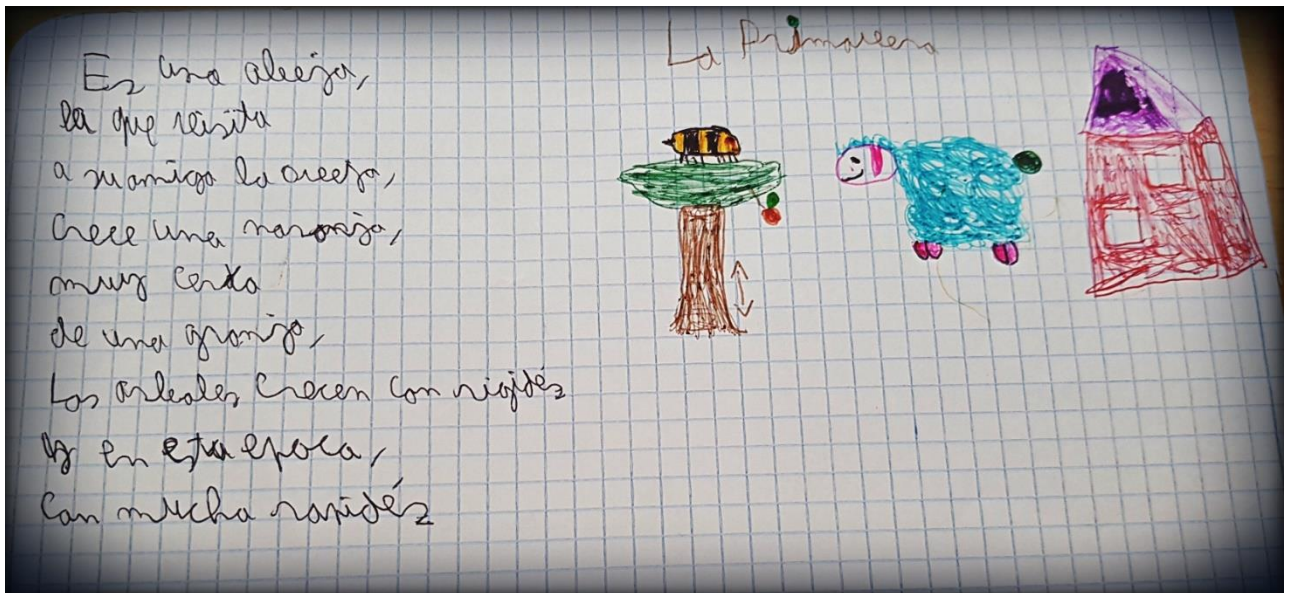 La Primavera
Es una abeja,
la que visita
a su amiga la oveja,
Crece una naranja,
muy cerca
de una granja,
Los arboles crecen con rigidéz
y en esta epoca,
Con mucha rapidéz